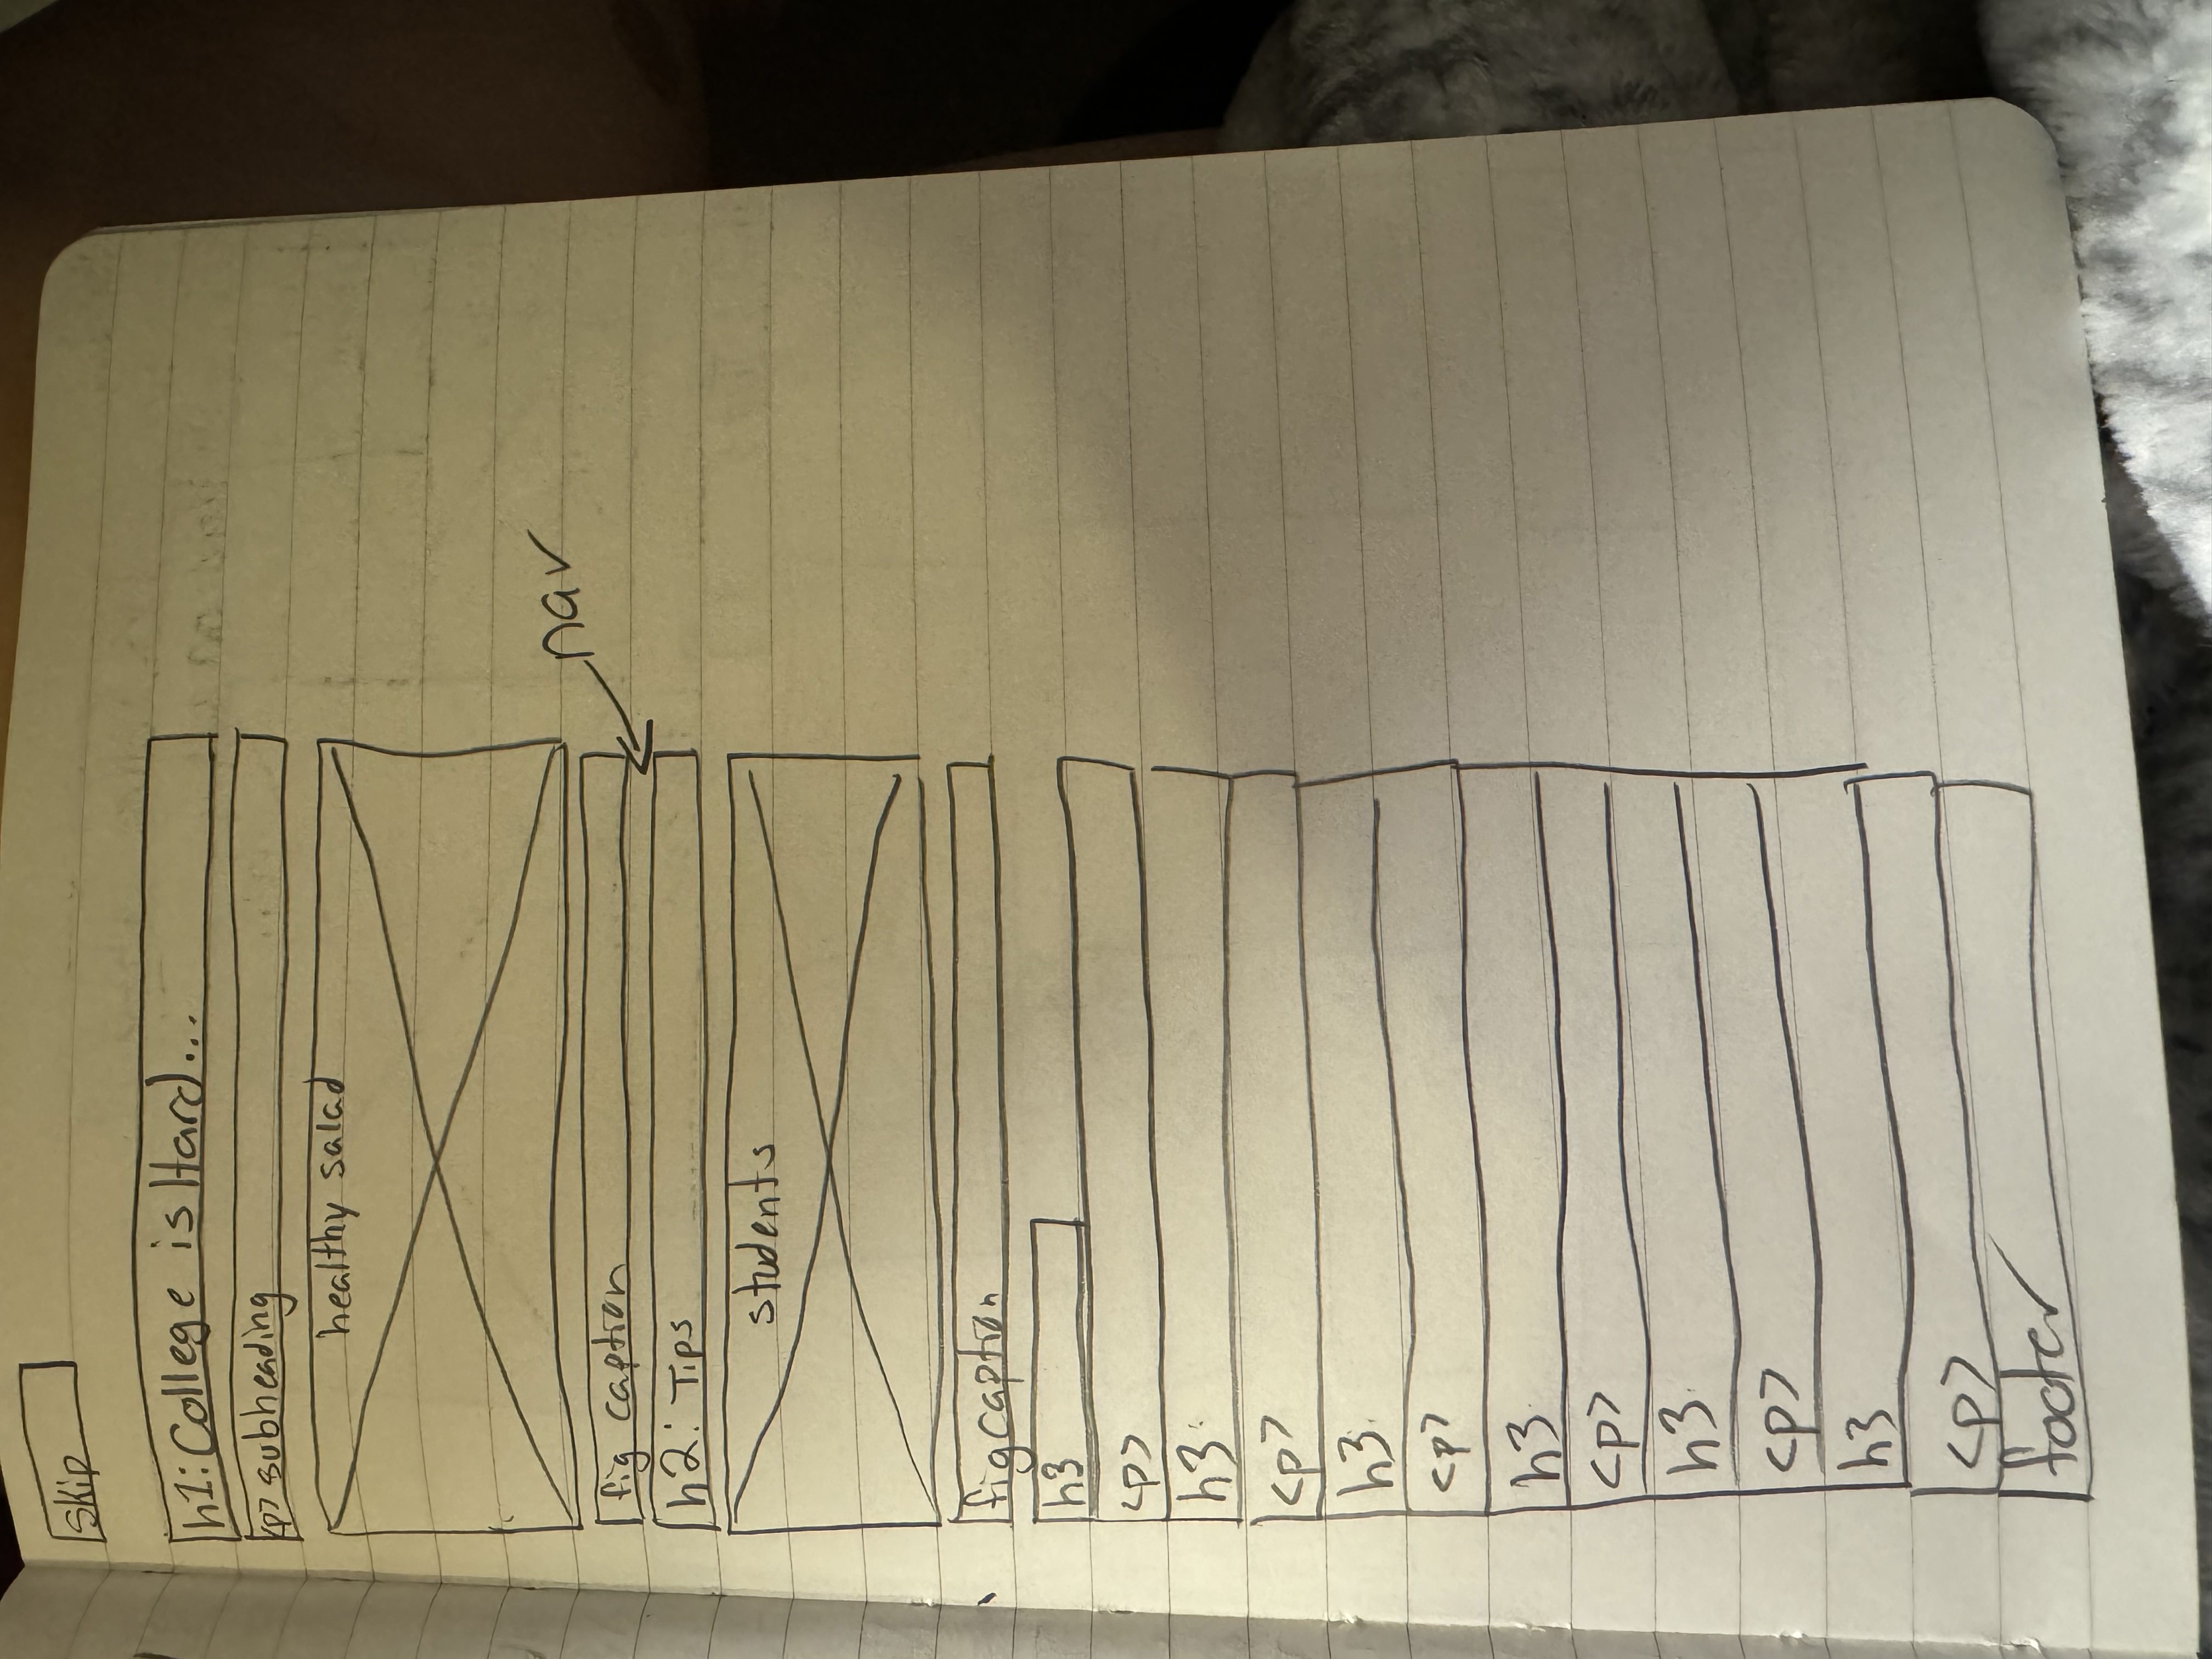 skip
h1: College is Hard...
<p> subheading
healthy salad
nav
fig caption
h2: Tips
students
figcaption
h3
<p>
h3
<p>
h3
<p>
h3
<p>
h3
<p>
h3
<p>
footer